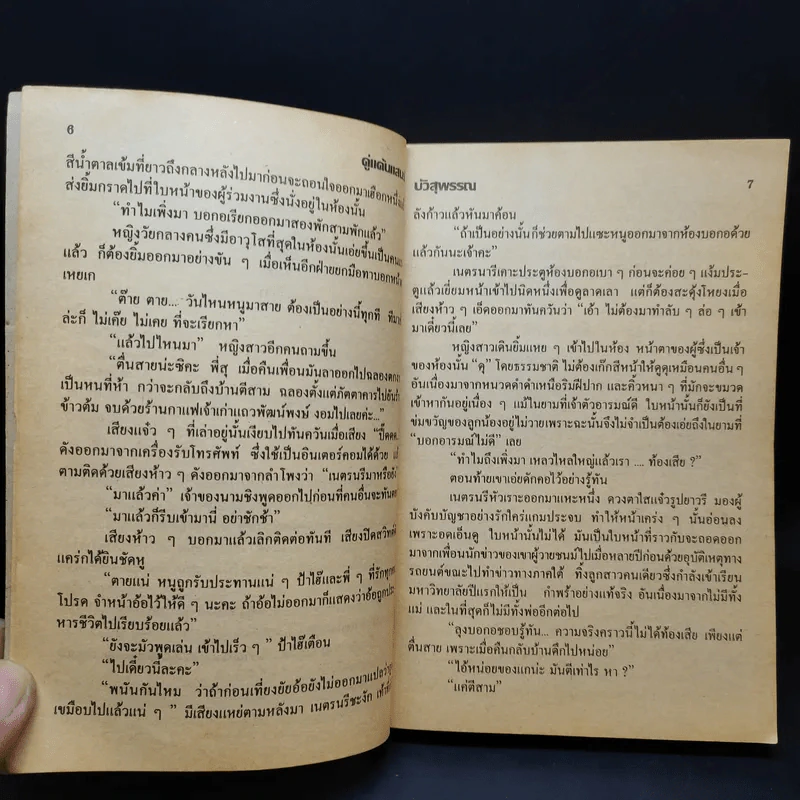 6
คู่แค้นแสน
สีน้ำตาลเข้มที่ยาวถึงกลางหลังไปมาก่อนจะถอนใจออกมาเฮือกหนึ่ง
ส่งยิ้มกราดไปที่ใบหน้าของผู้ร่วมงานซึ่งนั่งอยู่ในห้องนั้น
“ทำไมเพิ่งมา บอกอเรียกออกมาสองพักสามพักแล้ว”
หญิงวัยกลางคนซึ่งมีอาวุโสที่สุดในห้องนั้นเอ่ยขึ้นเป็นคน
แล้ว ก็ต้องยิ้มออกมาอย่างขัน ๆ เมื่อเห็นอีกฝ่ายยกมือทาบอกหน้า
เหยเก
“ต๊าย ตาย... วันไหนหนูมาสาย ต้องเป็นอย่างนี้ทุกที ทีมา
ล่ะก็ ไม่เค๊ย ไม่เคย ที่จะเรียกหา”
“แล้วไปไหนมา” หญิงสาวอีกคนถามขึ้น
“ตื่นสายน่ะซิคะ พี่สุ เมื่อคืนเพื่อนมันลาออกไปฉลองตก
เป็นหนที่ห้า กว่าจะกลับถึงบ้านตีสาม ฉลองตั้งแต่ภัตตาคารไปยัน
ข้าวต้ม จบด้วยร้านกาแฟเจ้าเก่าแถวพัฒน์พงษ์ งอมไปเลยค่ะ...”
เสียงแจ๋ว ๆ ที่เล่าอยู่นั้นเงียบไปทันควันเมื่อเสียง “ปี๊ดดด
ดังออกมาจากเครื่องรับโทรศัพท์ ซึ่งใช้เป็นอินเตอร์คอมได้ด้วย
ตามติดด้วยเสียงห้าว ๆ ดังออกมาจากลำโพงว่า “เนตรนรีมาหรือยัง
“มาแล้วค่า” เจ้าของนามชิงพูดออกไปก่อนที่คนอื่นจะทัน
“มาแล้วก็รีบเข้ามานี่ อย่าชักช้า”
เสียงห้าว ๆ บอกมาแล้วเลิกติดต่อทันที เสียงปิดสวิทช์
แคร่กได้ยินชัดหู
“ตายแน่ หนูถูกรับประทานแน่ ๆ ป้าไฮ๊และพี่ ๆ ที่รักทุก
โปรด จำหน้าอ้อไว้ให้ดี ๆ นะคะ ถ้าอ้อไม่ออกมาก็แสดงว่าอ้อถูก
หารชีวิตไปเรียบร้อยแล้ว”
“ยังจะมัวพูดเล่น เข้าไปเร็ว ๆ ” ป้าไฮ๊เตือน
“ไปเดี๋ยวนี้ละคะ”
“พนันกันไหม ว่าถ้าก่อนเที่ยงยัยอ้อยังไม่ออกมาแปลว่า
เขมือบไปแล้วแน่ ๆ ” มีเสียงแหย่ตามหลังมา เนตรนรีชะงัก
ปวิสุพรรณ
7
ลังก้าวแล้วหันมาค้อน
“ถ้าเป็นอย่างนั้นก็ช่วยตามไปแซะหนูออกมาจากห้องบอกอด้วย
แล้วกันนะเจ้าคะ”
เนตรนารีเคาะประตูห้องบอกอเบา ๆ ก่อนจะค่อย ๆ แง้มประ-
ตูแล้วเยี่ยมหน้าเข้าไปนิดหนึ่งเพื่อดูลาดเลา แต่ก็ต้องสะดุ้งโหยงเมื่อ
เสียงห้าว ๆ เอ็ดออกมาทันควันว่า “เอ้า ไม่ต้องมาทำลับ ๆ ล่อ ๆ เข้า
มาเดี๋ยวนี้เลย”
หญิงสาวเดินยิ้มแหย ๆ เข้าไปในห้อง หน้าตาของผู้ซึ่งเป็นเจ้า
ของห้องนั้น “ดุ” โดยธรรมชาติ ไม่ต้องเก๊กสีหน้าให้ดูดุเหมือนคนอื่น ๆ
อันเนื่องมาจากหนวดดำดำเหนือริมฝีปาก และคิ้วหนา ๆ ที่มักจะขมวด
เข้าหากันอยู่เนือง ๆ แม้ในยามที่เจ้าตัวอารมณ์ดี ใบหน้านั้นก็ยังเป็นที่
ข่มขวัญของลูกน้องอยู่ไม่วายเพราะฉะนั้นจึงไม่จำเป็นต้องเอ่ยถึงในยามที่
“บอกอารมณ์ไม่ดี” เลย
“ทำไมถึงเพิ่งมา เหลวไหลใหญ่แล้วเรา .... ท้องเสีย ?”
ตอนท้ายเขาเอ่ยดักคอไว้อย่างรู้ทัน
เนตรนรีหัวเราะออกมาแหะหนึ่ง ดวงตาใสแจ๋วรูปยาวรี มองผู้
บังคับบัญชาอย่างรักใคร่แกมประจบ ทำให้หน้าเคร่ง ๆ นั้นอ่อนลง
เพราะอดเอ็นดู ใบหน้านั้นไม่ได้ มันเป็นใบหน้าที่ราวกับจะถอดออก
มาจากเพื่อนนักข่าวของเขาผู้วายชนม์ไปเมื่อหลายปีก่อนด้วยอุบัติเหตุทาง
รถยนต์ขณะไปทำข่าวทางภาคใต้ ทิ้งลูกสาวคนเดียวซึ่งกำลังเข้าเรียน
มหาวิทยาลัยปีแรกให้เป็น กำพร้าอย่างแท้จริง อันเนื่องมาจากไม่มีทั้ง
แม่ และในที่สุดก็ไม่มีทั้งพ่ออีกต่อไป
“ลุงบอกอชอบรู้ทัน... ความจริงคราวนี้ไม่ได้ท้องเสีย เพียงแต่
ตื่นสาย เพราะเมื่อคืนกลับบ้านดึกไปหน่อย”
“ไอ้หน่อยของแกน่ะ มันตีเท่าไร หา ?”
“แค่ตีสาม”